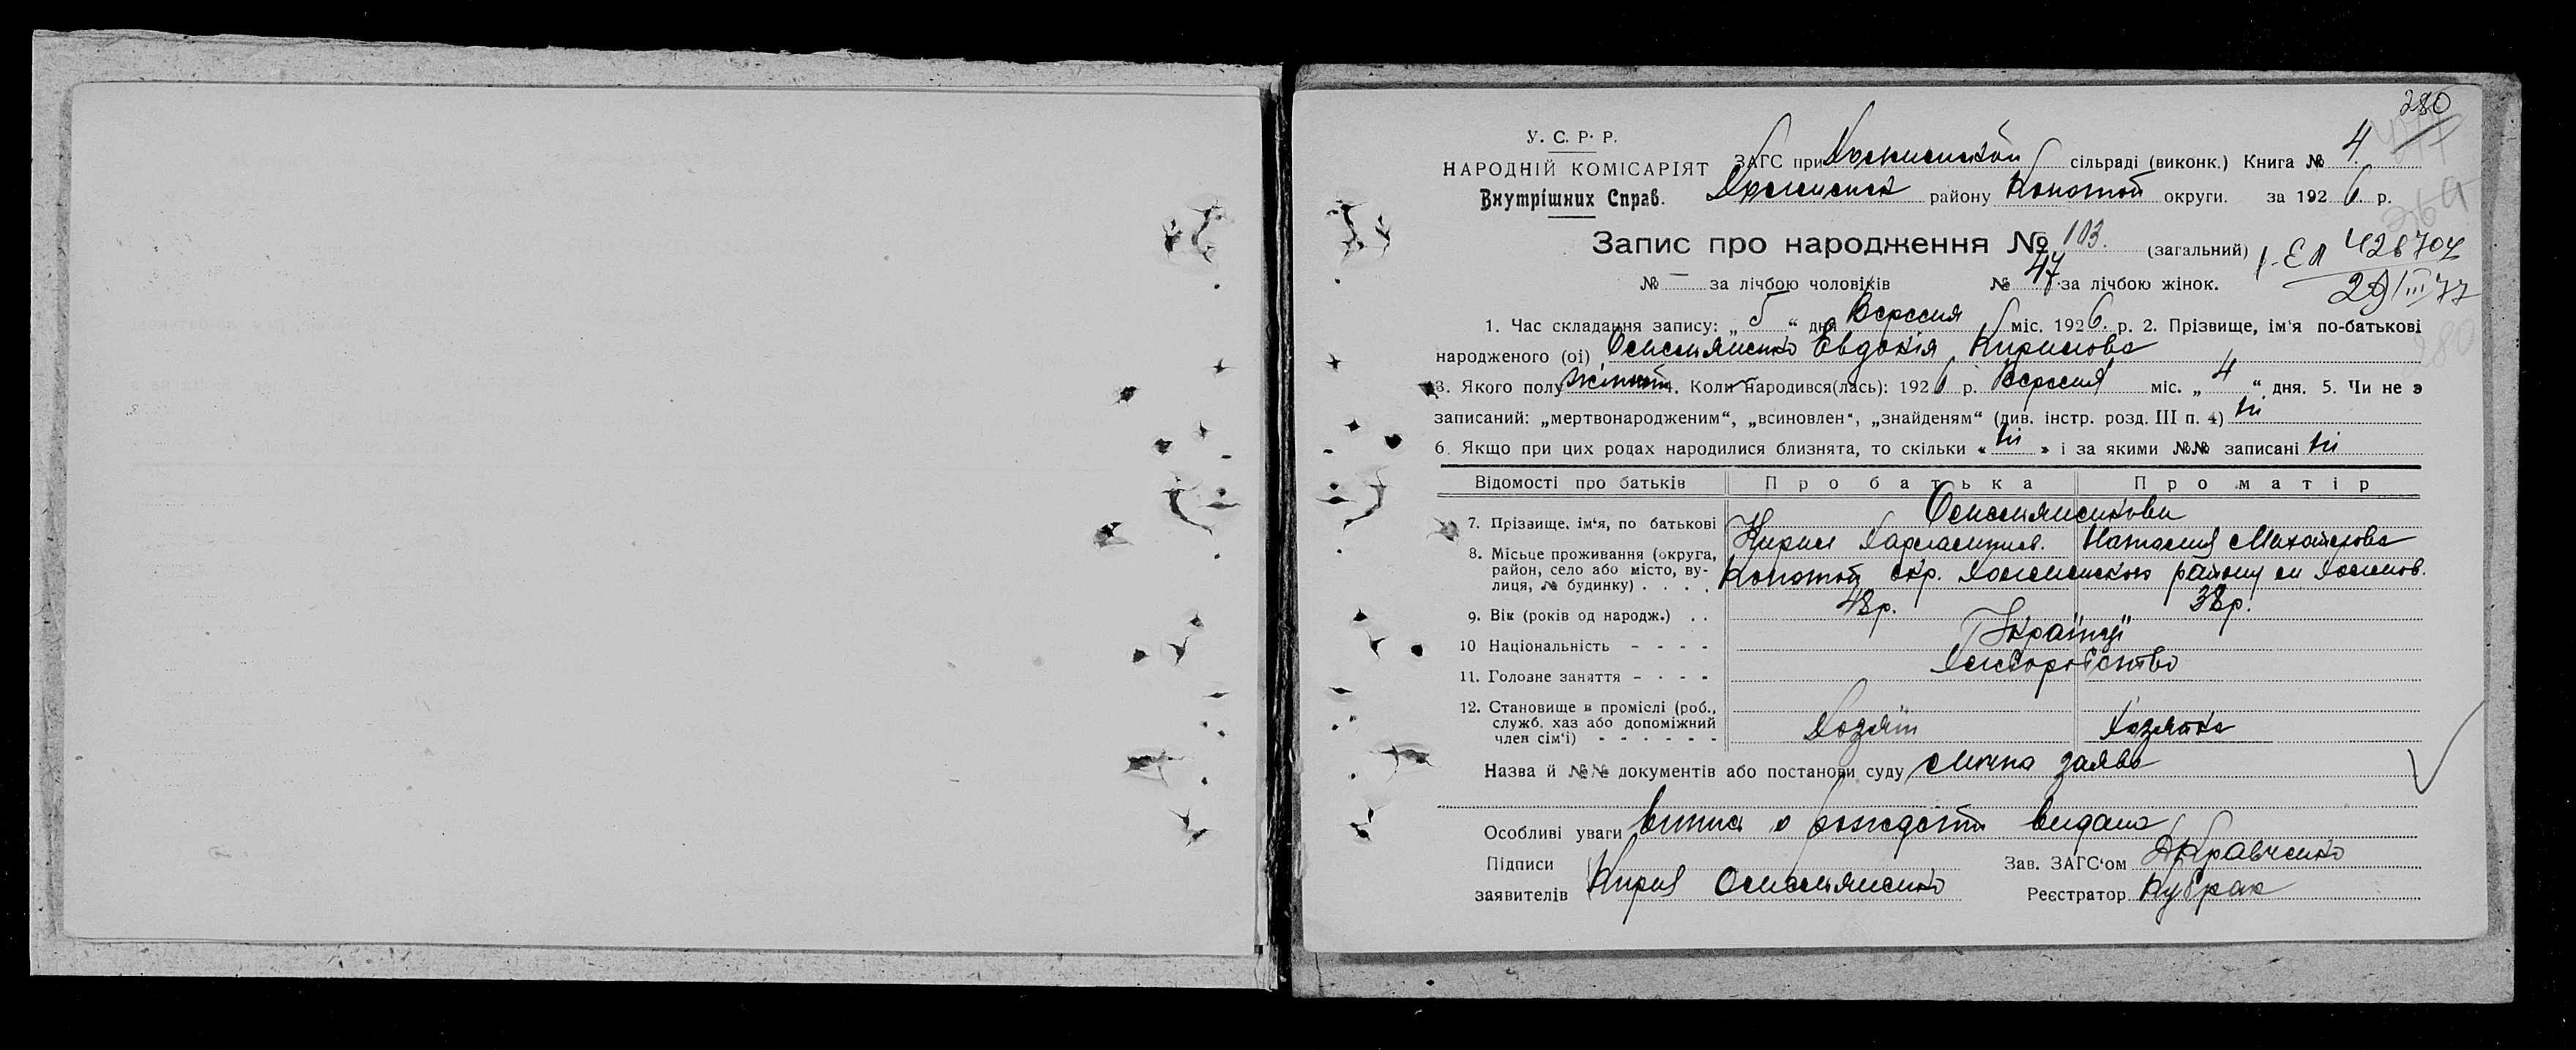 280
У. С. Р. Р.
НАРОДНІЙ КОМІСАРІЯТ
Внутрішних Справ.
ЗАГС при сільраді (виконк.) Книга № 4.
району Конотоп округи. за 1926 р.
264
Запис про народження № 103. (загальний)
I-ЕЛ 428707
29/III 77
№ — за лічбою чоловіків № 47 за лічбою жінок.
1. Час складання запису: „ 5 “ дня Вересня міс. 1926. р. 2. Прізвище, ім'я по-батькові
280
народженого (ої) Омельяненко Евдокія Кирилова
3. Якого полу жіноч. 4. Коли народився(лась): 1926 р. Вересня міс. „ 4 “ дня. 5. Чи не э
записаний: „мертвонародженим“, „всиновлен“, „знайденям“ (див. інстр. розд. III п. 4) ні
6. Якщо при цих родах народилися близнята, то скільки « ні » і за якими №№ записані ні
Відомості про батьків Про батька Про матір
7. Прізвище, ім'я, по батькові Омельяненкови
Кирил Харлампиев. Наталия Михайлова
8. Місьце проживання (округа, район, село або місто, вулиця, № будинку) . . . . Конотоп окр. району
9. Вік (років од народж.) . . 48р. 38р.
10 Національність - - - - Українці
11. Головне заняття - - - - Хліборобство
12. Становище в промислі (роб., служб. хаз або допоміжний член сім'ї) - - - - - - Хозяїн Хазяйка
Назва й №№ документів або постанови суду Лична заява
Особливі уваги випись о рождении видана
Підписи
заявителів Кирил Омельяненко
Зав. ЗАГС'ом Кравченко
Реєстратор Кубрак